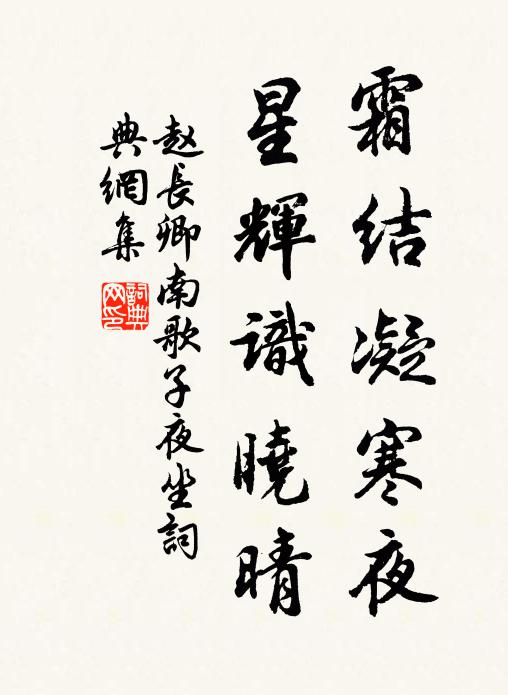 霜结凝寒夜
星輝識曉晴
赵長卿南歌子夜坐詞
典網集
詞典网印